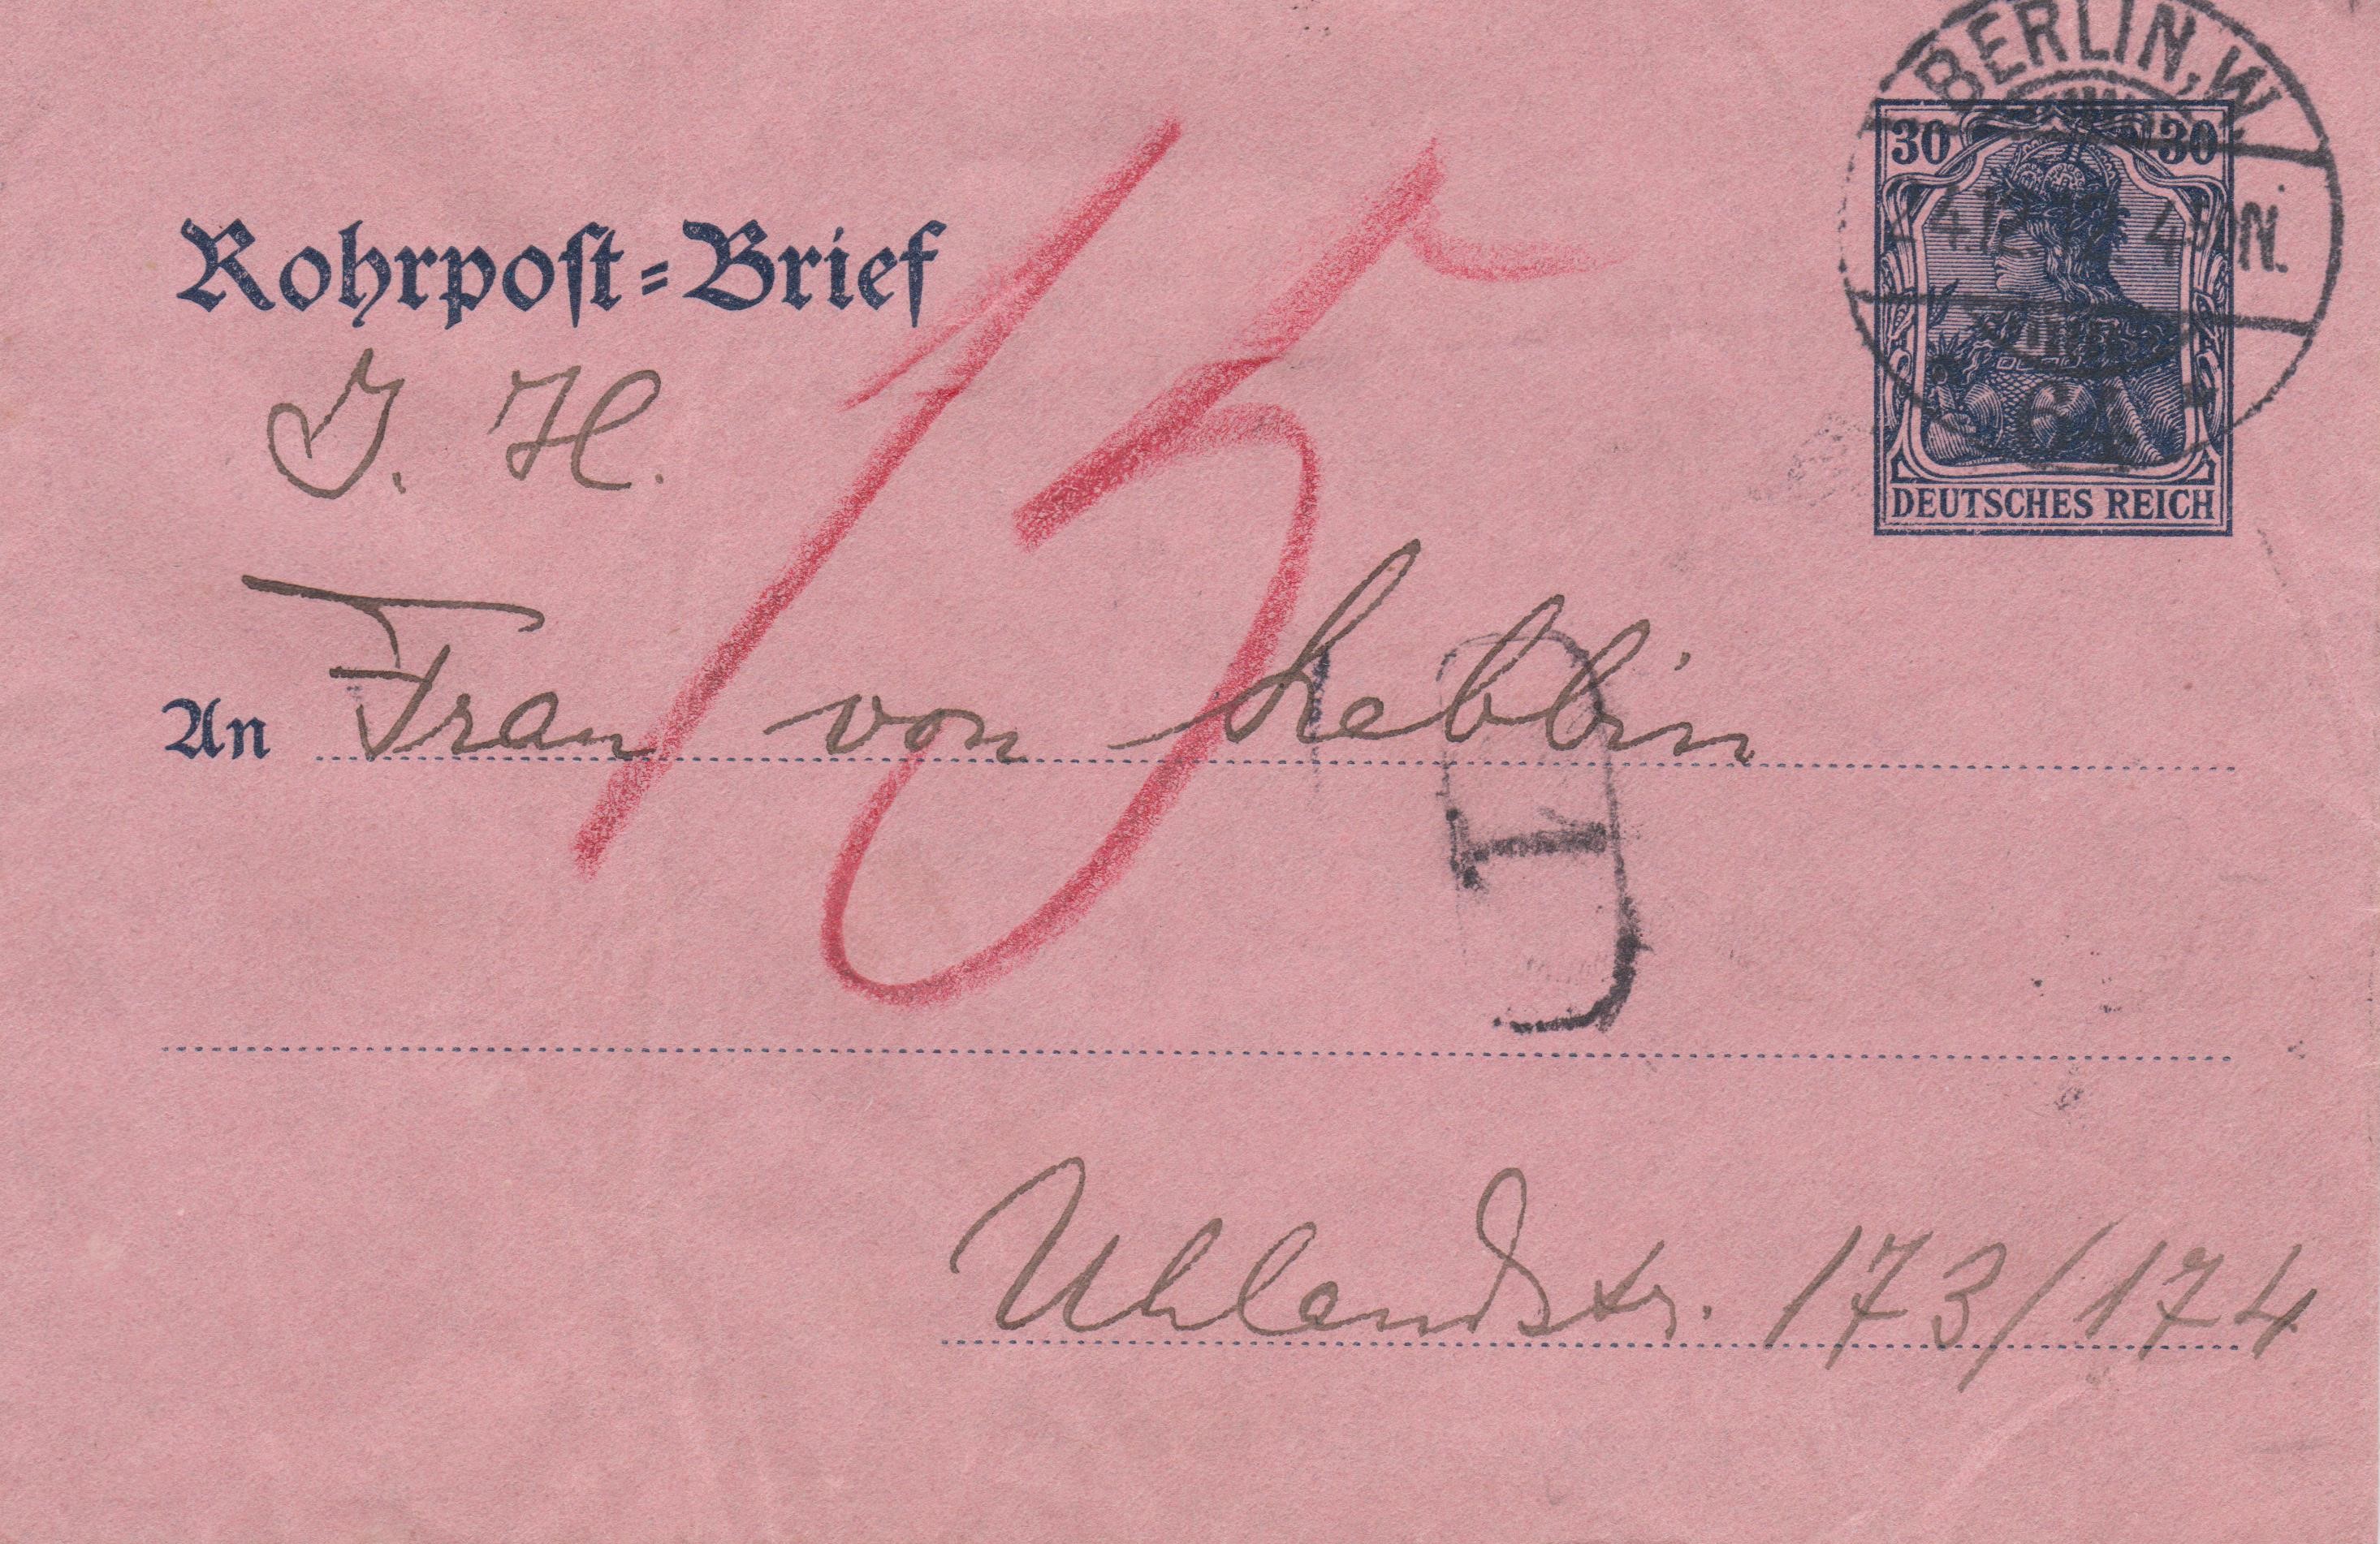 BERLIN, W
30 30
DEUTSCHES REICH
Rohrpost-Brief
15
J. H.
An Frau von Lebbin
I
Uhlandstr. 173/174